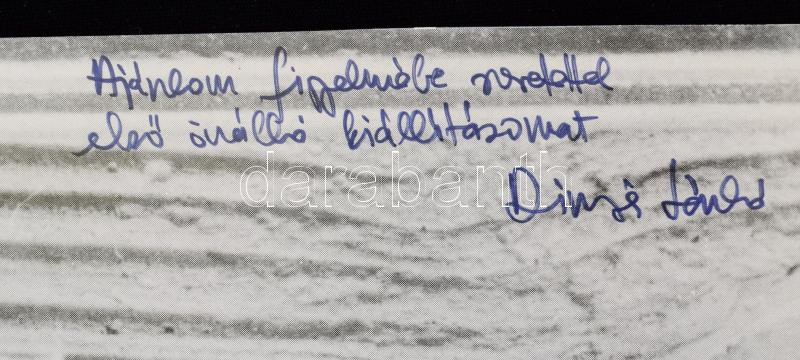 Ajánlom figyelmébe szeretettel
első önálló kiállításomat
darabanth